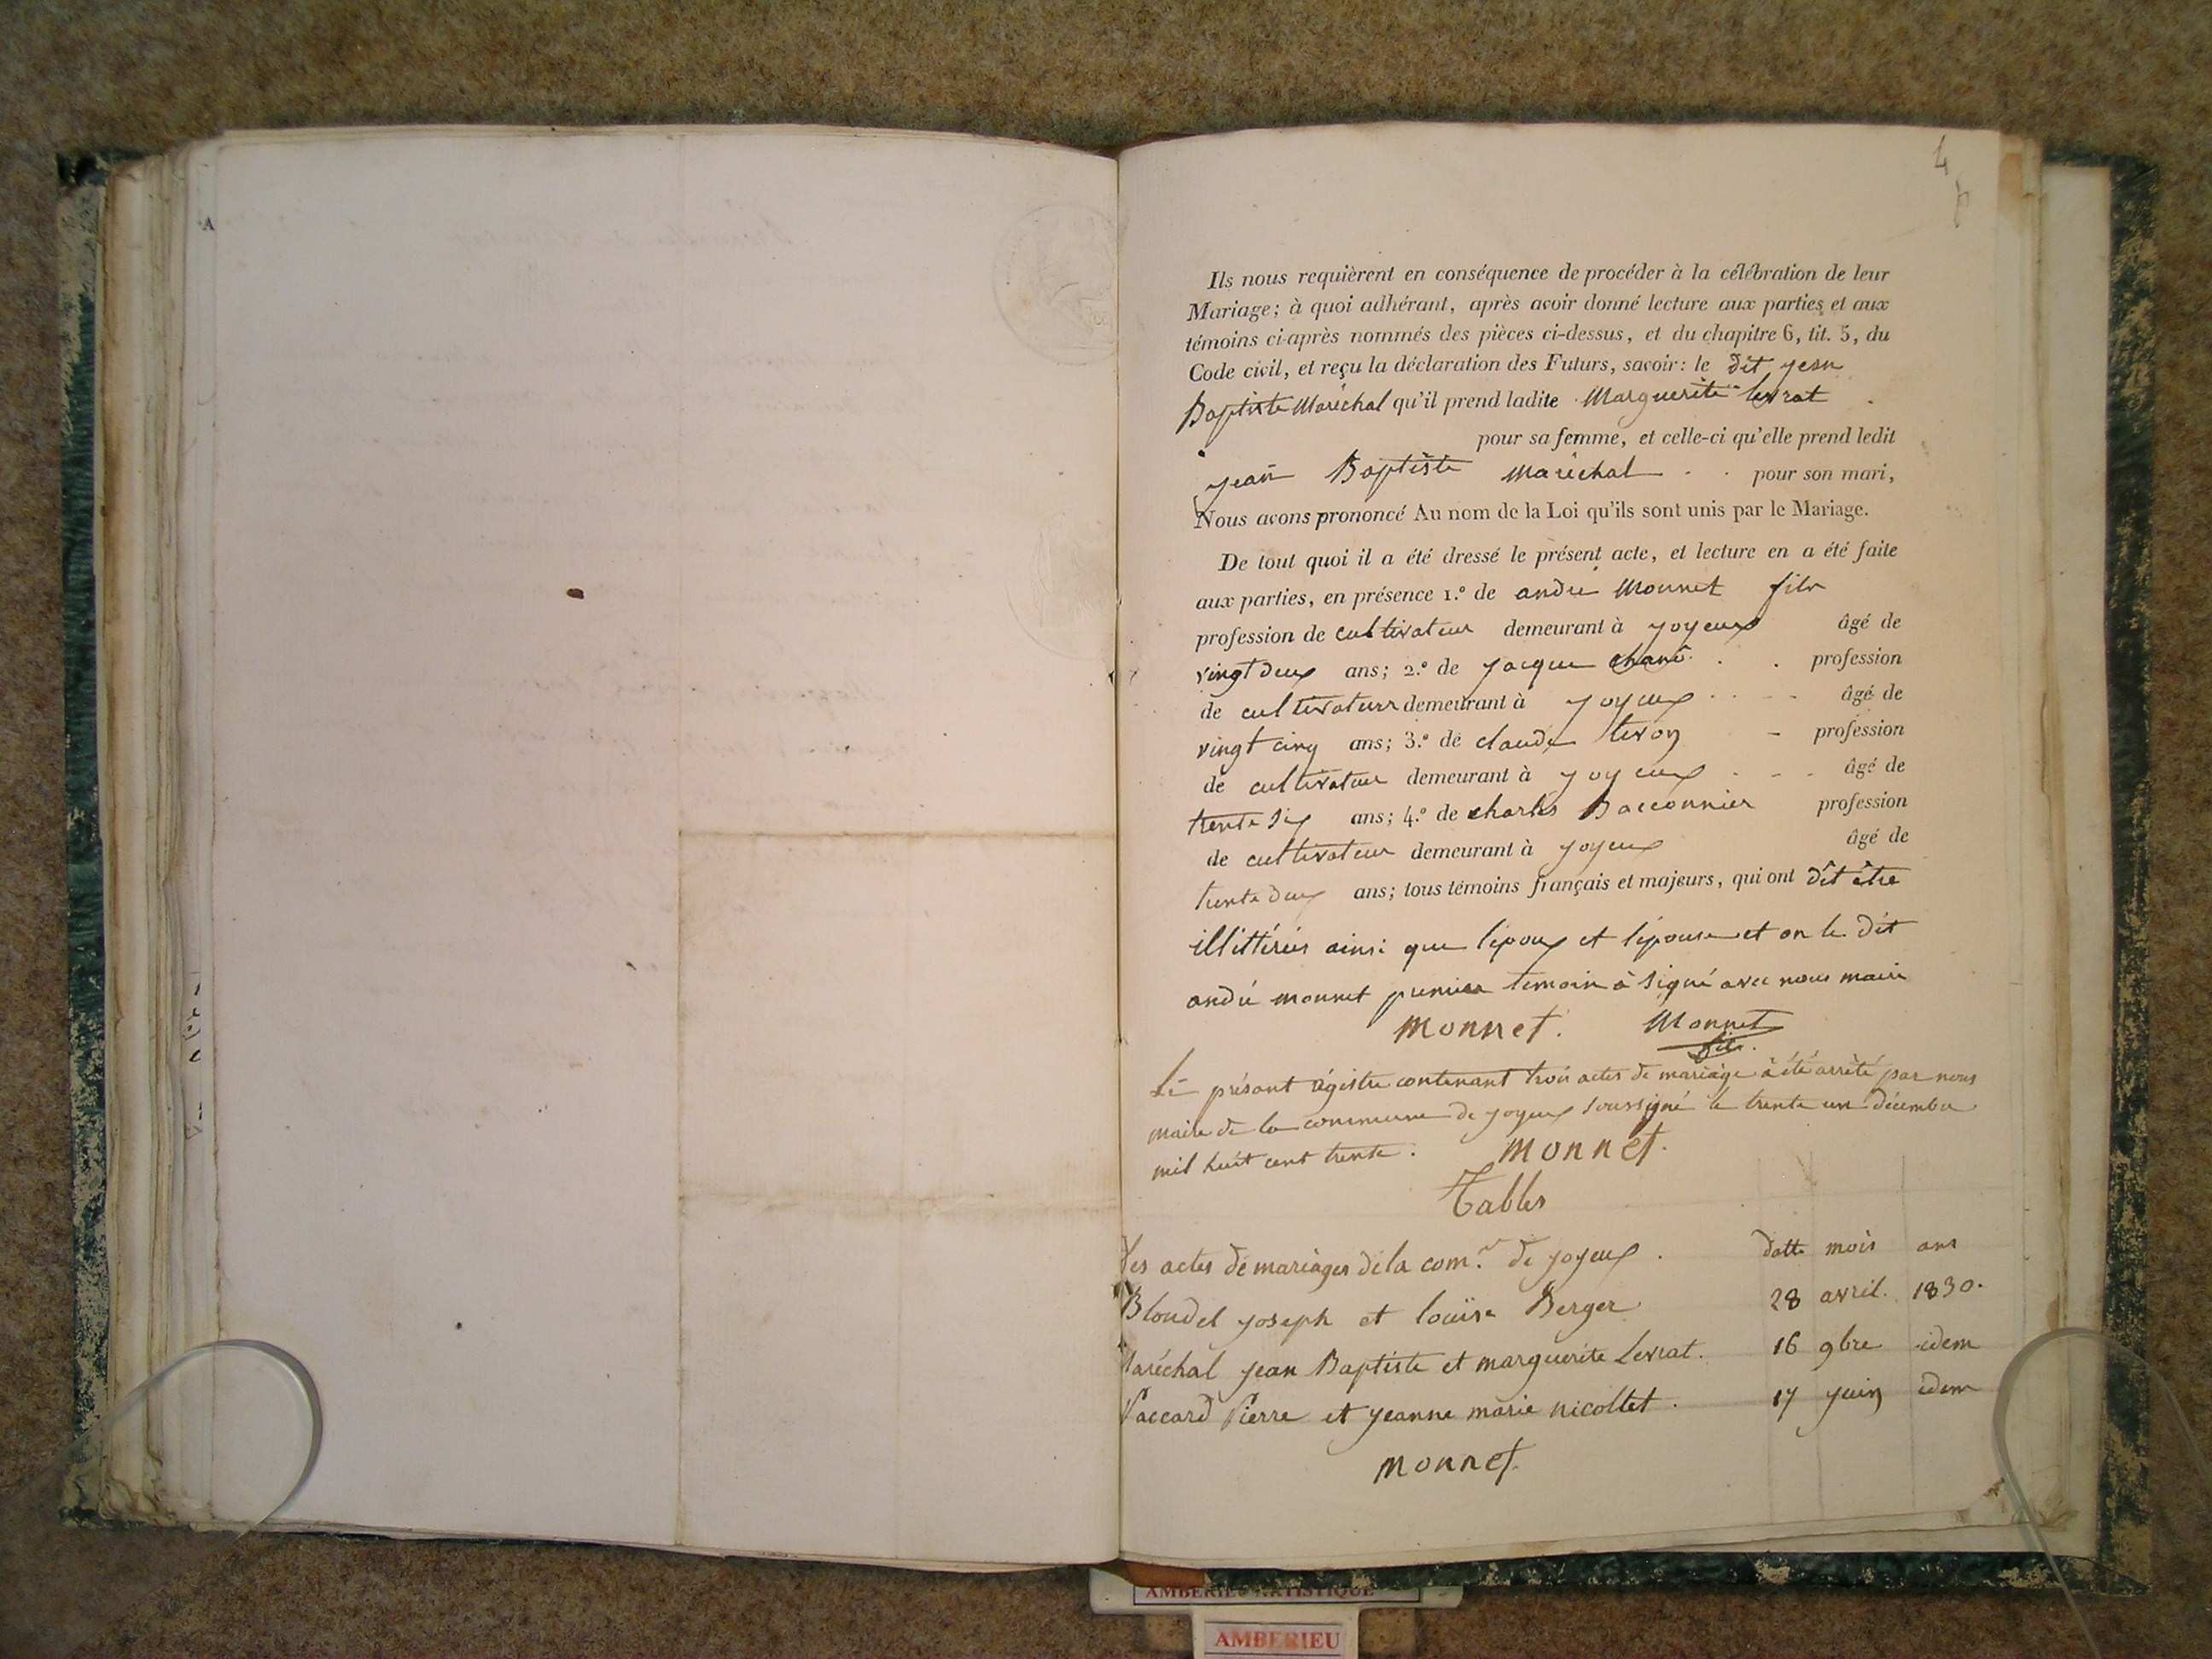 4
Ils nous requièrent en conséquence de procéder à la célébration de leur
Mariage; à quoi adhérant, après avoir donné lecture aux parties et aux
témoins ci-après nommés des pièces ci-dessus, et du chapitre 6, tit. 5, du
Code civil, et reçu la déclaration des Futurs, savoir: le dit jean
Baptiste Maréchal qu'il prend ladite Marguerite levrat
pour sa femme, et celle-ci qu'elle prend ledit
jean Baptiste Maréchal pour son mari,
Nous avons prononcé Au nom de la Loi qu'ils sont unis par le Mariage.
De tout quoi il a été dressé le présent acte, et lecture en a été faite
aux parties, en présence 1.º de andré Monnet fils
profession de cultivateur demeurant à joyeux âgé de
vingt deux ans; 2.º de jacque profession
de cultivateur demeurant à joyeux âgé de
vingt cinq ans; 3.º de claude profession
de cultivateur demeurant à joyeux âgé de
trente six ans; 4.º de charles Bacconnier profession
de cultivateur demeurant à joyeux âgé de
trente deux ans; tous témoins français et majeurs, qui ont dit être
illittérés ainsi que l'époux et l'épouse et on le dit
andré monnet premier temoin à signé avec nous maire
monnet. Monnet
fils.
Le présant régistre contenant trois actes de mariage à été arrêté par nous
maire de la commune de joyeux soussigné le trente un décembre
mil huit cent trente. monnet.
Tables
Des actes de mariages de la com.e de joyeux. datte mois ans
Blondel joseph et louïse Berger 28 avril. 1830.
Maréchal jean Baptiste et marguerite Levrat. 16 9bre idem
Paccard Pierre et jeanne marie nicollet. 17 juin idem
monnet.
AMBERIEU